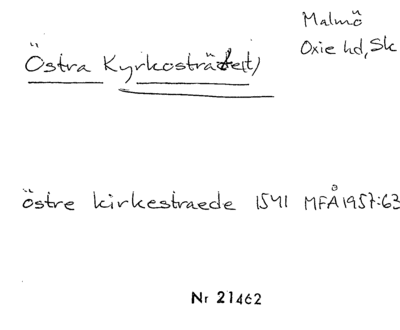 Malmö
Oxie hd, Sk
Östra Kyrkosträtet)
östre kirkestraede 1541 MFÅ 1957:63
Nr 21462